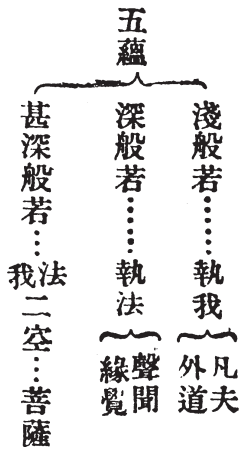 五蘊
淺般若……執我
凡夫
外道
深般若……執法
聲聞
緣覺
甚深般若…我法二空…菩薩